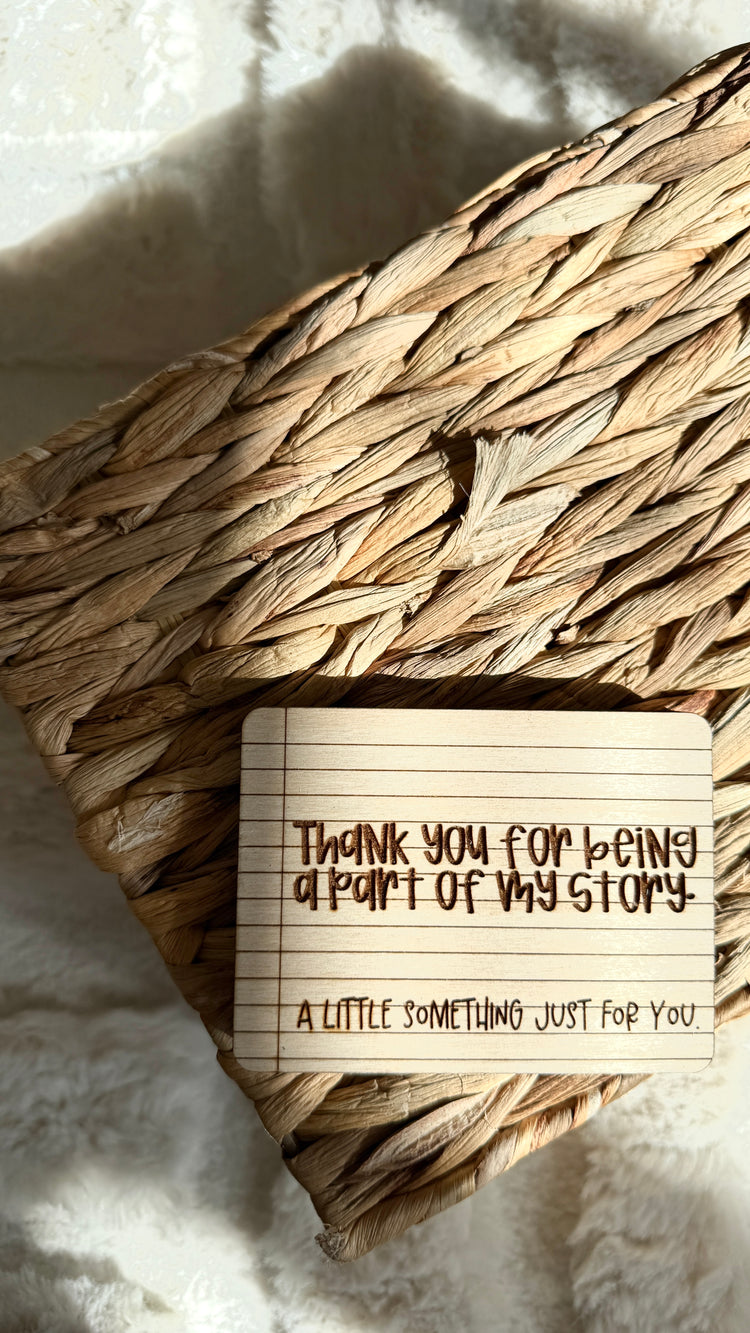 Thank you for being
a part of my story.
A LITTLE SOMETHING JUST FOR YOU.